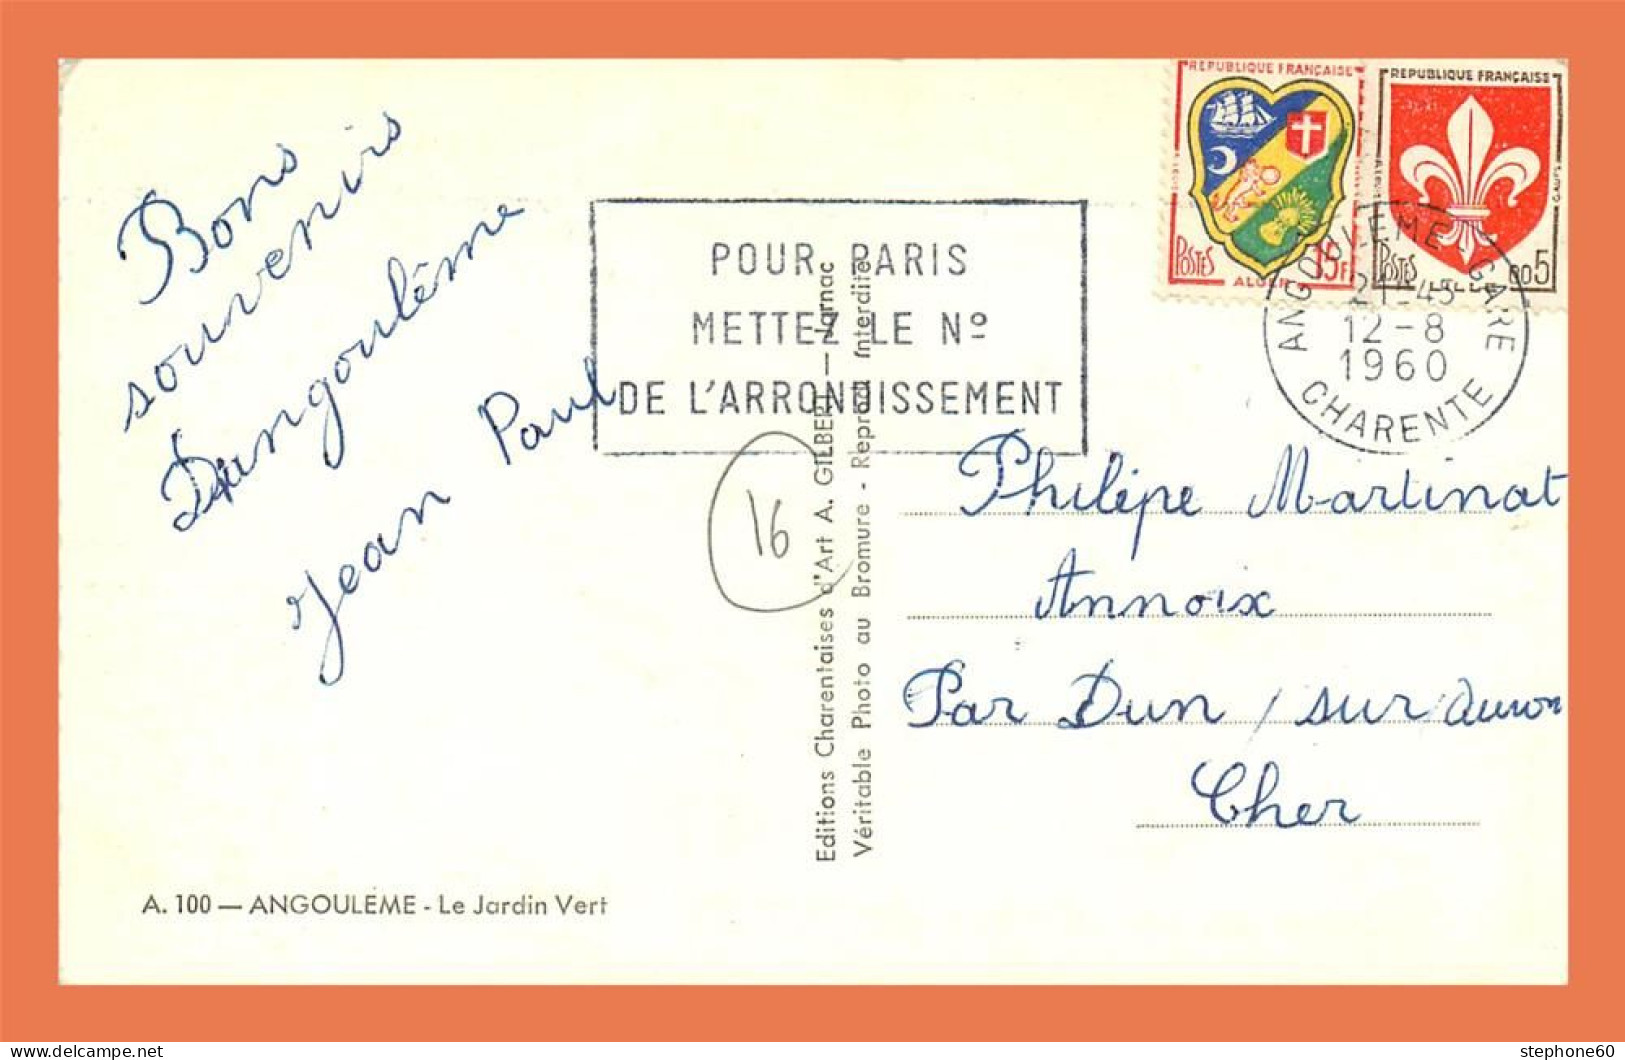 Bons
souvenirs
Dangoulême
Jean Paul
A. 100 — ANGOULÊME - Le Jardin Vert
POUR PARIS
METTEZ LE Nº
DE L'ARRONDISSEMENT
16
Editions Charentaises d'Art A. GILBERT — Jarnac
Véritable Photo au Bromure - Reprod. Interdite
REPUBLIQUE FRANÇAISE
POSTES
15F
ALGER
REPUBLIQUE FRANÇAISE
POSTES
0,05
LILLE
ANGOULEME GARE
21-45
12-8
1960
CHARENTE
Philipe Martinat
Annoix
Par Dun / sur Auron
Cher
stephone60